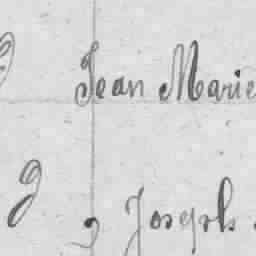 Jean Marie
g
g Joseph